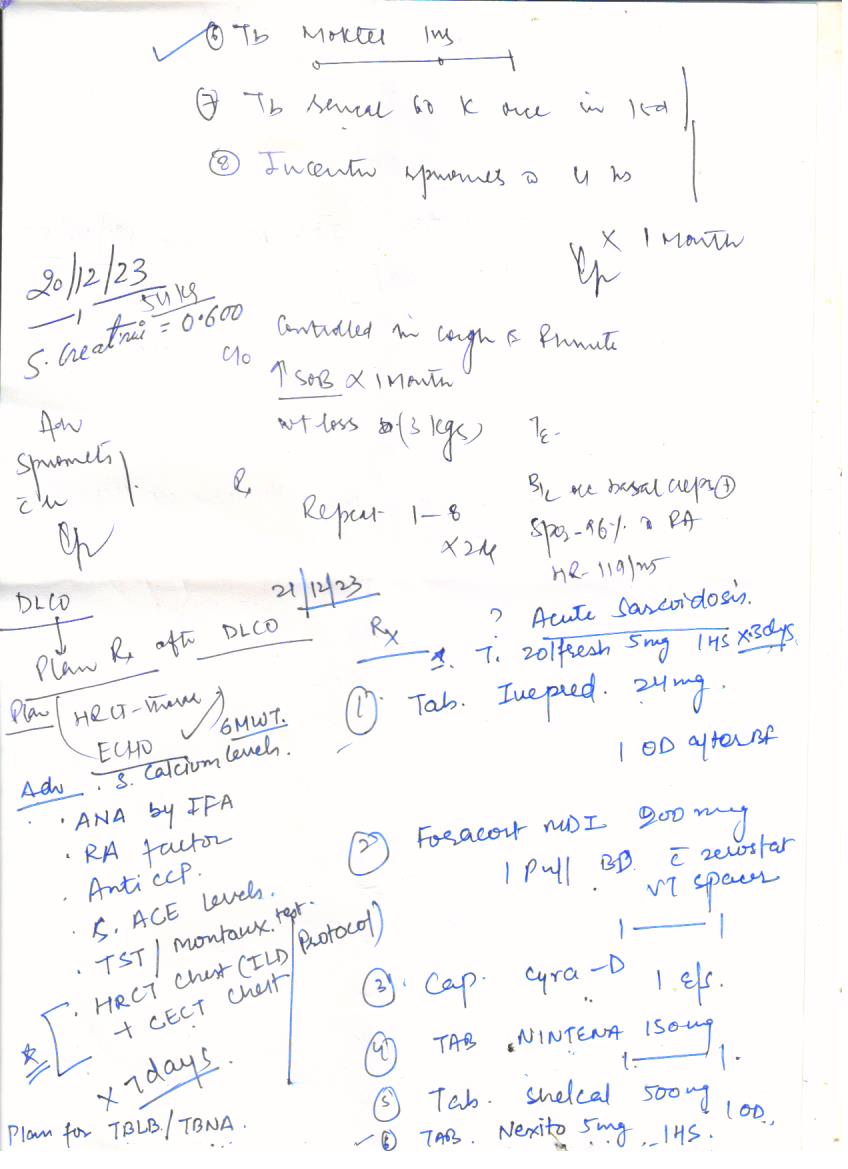 ⑥ Tb Moktel Ins
⑦ Tb 60 K once in
⑧ Incentiv 4 hs
X 1 Month
20/12/23
54 kg
S. Creatinie = 0.600
C/o Controlled in cough &
↑ SOB x 1 Month
wt loss (3 kgs) %E-
Adv
B/L basal creps ⊕
Rx Repeat 1-8
SpO2-96% RA
HR-119/
DLCO
21/12/23
? Acute Sarcoidosis.
Plan Rx after DLCO
Rx
T. Zolfresh 5mg 1HS x3dys
Plan HRCT-
① Tab. 24mg.
ECHO 6MWT.
1 OD after BF
Adv . S. Calcium levels.
. ANA by IFA
. RA factor
② Foracort MDI 200 mcg
1 Puff BD c̄ zerostat
VT spacer
1 — 1
. Anti CCP.
. S. ACE levels.
. TST / Montaux test.
. HRCT chest (ILD Protocol)
+ CECT chest
③ Cap. Cyra-D 1 E/S.
④ TAB NINTENA 150mg
1 — 1.
x 7 days.
⑤ Tab. Shelcal 500mg 1 OD.
Plan for TBLB/TBNA.
⑥ TAB. Nexito 5mg 1HS.